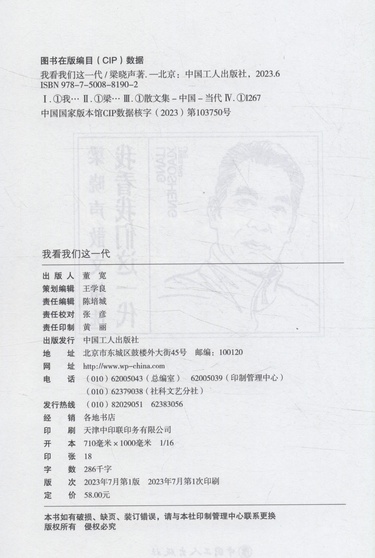 图书在版编目（CIP）数据
我看我们这一代 / 梁晓声著. —北京：中国工人出版社，2023.6
ISBN 978-7-5008-8190-2
Ⅰ.①我… Ⅱ.①梁… Ⅲ.①散文集－中国－当代 Ⅳ.①I267
中国国家版本馆CIP数据核字（2023）第103750号
我看我们这一代
出版人 董 宽
策划编辑 王学良
责任编辑 陈培城
责任校对 张 彦
责任印制 黄 丽
出版发行 中国工人出版社
地 址 北京市东城区鼓楼外大街45号 邮编：100120
网 址 http://www.wp-china.com
电 话 （010）62005043（总编室） 62005039（印制管理中心）
（010）62379038（社科文艺分社）
发行热线 （010）82029051 62383056
经 销 各地书店
印 刷 天津中印联印务有限公司
开 本 710毫米×1000毫米 1/16
印 张 18
字 数 286千字
版 次 2023年7月第1版 2023年7月第1次印刷
定 价 58.00元
本书如有破损、缺页、装订错误，请与本社印制管理中心联系更换
版权所有 侵权必究